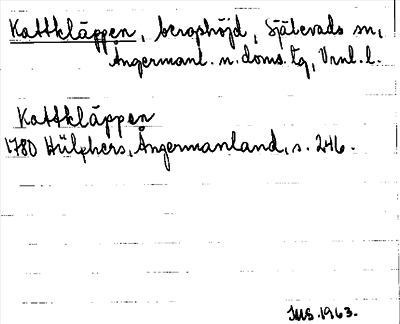 Kattkläppen, bergshöjd, Själevads sn,
Ångermanl. n. doms. tg, Vrnl. l.
Kattkläppen
1780 Hülphers, Ångermanland, s. 246.
IMS. 1963.